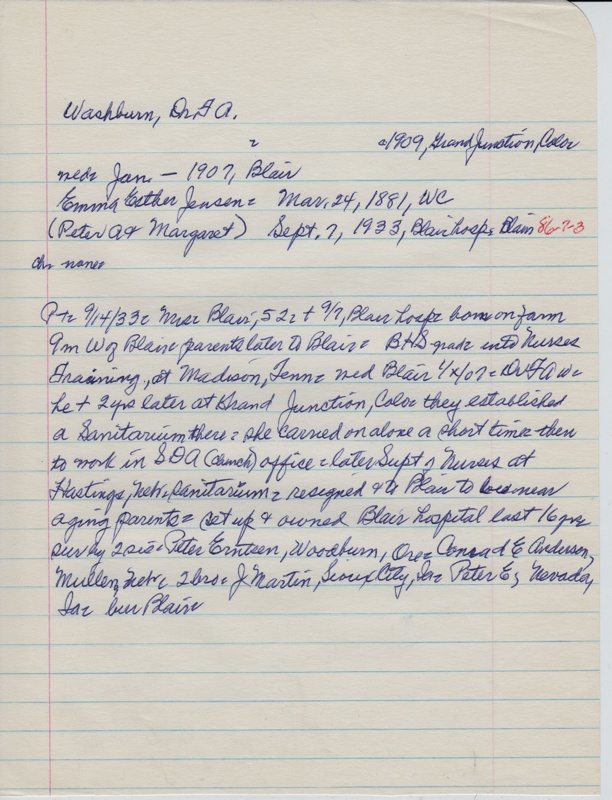 Washburn, Dr. F A.
= =1909, Grand Junction, Color
med= Jan. - 1907, Blair
Emma Esther Jensen= Mar. 24, 1881, WC
(Peter A & Margaret) Sept. 7, 1933, Blair hosp= Blair 86-7-3
Ch= none=
P+= 9/14/33= Mrs= Blair, 52= + 9/7, Blair hosp= born on farm
9m W of Blair= parents later to Blair= BHS grad= into Nurses
Training, at Madison, Tenn= med Blair 1/x/07= Dr FA W=
he + 2 yrs later at Grand Junction, Colo= they established
a Sanitarium there= she carried on alone a short time= then
to work in SDA (church) office= later Supt of Nurses at
Hastings, Nebr= sanitarium= resigned & to Blair to be near
aging parents= set up & owned Blair Hospital last 16 yrs
sur by 2 sis= Peter Erntsen, Woodburn, Ore= Conrad E Anderson,
Mullen, Nebr= 2 bro= J Martin, Sioux City, Ia= Peter E, Nevada,
Ia= bur Blair=